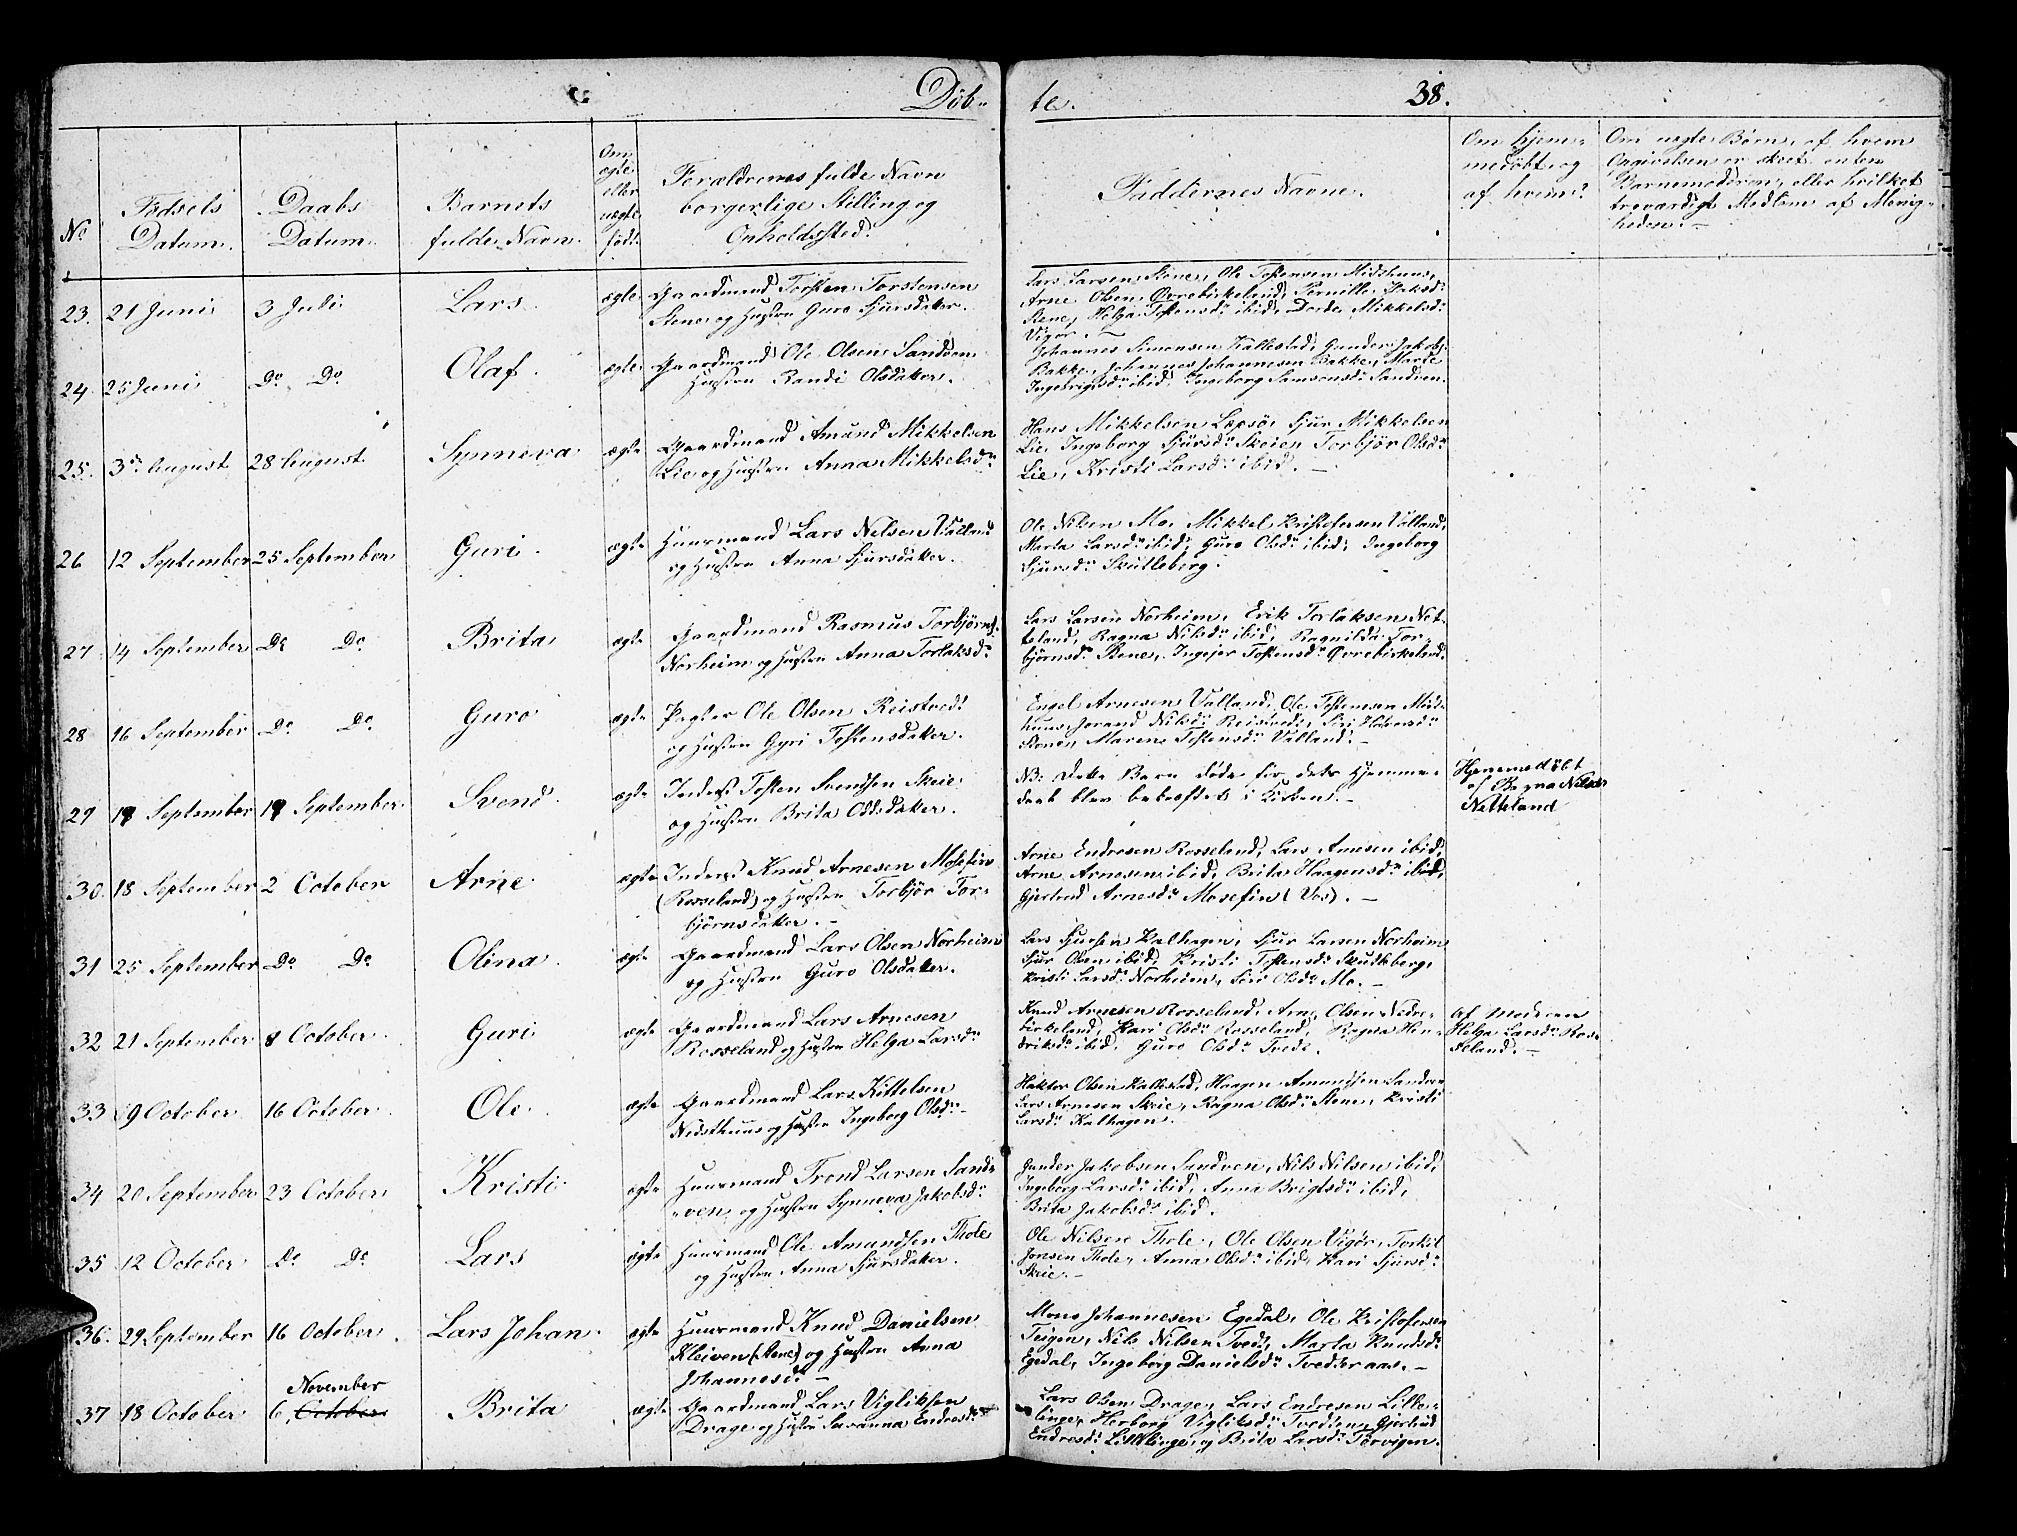 Döb-
te.
38.
No
Fødsels
Datum.
Daabs
Datum.
Barnets
fulde Navn.
Om
ægte
eller
uægte
født.
Forældrenes fulde Navn
borgerlige Stilling og
Opholdssted.
Faddernes Navne.
Om hjem-
medøbt og
af hvem?
Om uægte Børn, af hvem
Opgivelsen er skeet, enten
Barnemoderen, eller hvilket
troværdigt Medlem af Menig-
heden.
23. 21 Juni 3 Juli Lars ægte Gaardmand Torsten Torstensen
Stene og Hustru Guro Sjursdatter.
Lars Larsen Stene, Ole Tostensen Midthuus,
Arne Olsen Øvrebirkeland, Pernille
Stene, Helga Tostensdr ibid, Dorde Mikkelsdr
Vigør.
24. 25 Juni Do Do Olaf. ægte Gaardmand Ole Olsen Sandven
Hustru Randi Olsdatter.
Johannes Simonsen Kallestad, Gunder Jakobs.
Bakke, Johannes Johannesen Bakke, Marte
ibid, Ingeborg Samsonsdr Sandven.
25. 3 August 28 August Synneva ægte Gaardmand Amund Mikkelsen
Lie og Hustru Anna Mikkelsdr
Hans Mikkelsen Læpsø, Sjur Mikkelsen
Lie, Ingeborg Sjursdr Skeien Torbjør Olsdr
Lie, Kristi Larsdr ibid.
26 12 September 25 September Guri. ægte Huusmand Lars Nilsen Valland
og Hustru Anna Sjursdatter.
Ole Nilsen Mo, Mikkel Kristofersen Valland,
Marta Larsdr ibid, Guro Olsdr ibid, Ingeborg
Sjursdr Skutleberg.
27. 14 September Do Do Brita ægte Gaardmand Rasmus Torbjørns.
Norheim og Hustru Anna Torlaksdr
Lars Larsen Norheim, Erik Torlaksen Net-
teland, Ragna Nilsdr ibid, Ragnilda Tor-
bjørnsdr Stene, Ingejer Tostensdr Øvrebirkeland.
28 16 September Do Do Guro ægte Pagter Ole Olsen Reistved
og Hustru Gyri Tostensdatter.
Engel Arnesen Valland, Ole Tostensen Midt-
huus, Jorand Nilsdr Reistved, Siri Halvorsdr
Stene, Maren Tostensdr Valland.
29 September September. Svend ægte Inderst Tosten Svendsen Skeie
og Hustru Brita Oddsdatter.
NB. Dette Barn døde før dets Hjemme-
daab blev bekræftet i Kirken.
Hjemmedøbt
af Ragna Nilsdr
Netteland
30. 18 September 2 October Arne ægte Inderst Knud Arnesen Mosefin
(Rosseland) og Hustru Torbjør Tor-
bjørnsdatter.
Arne Endresen Rosseland, Lars Arnesen ibid,
Arne Arnesen ibid, Brita Haagensdr ibid,
Gjertrud Arnesdr Mosefin (Vos).
31 25 September Do Do Olina. ægte Gaardmand Lars Olsen Norheim
og Hustru Guro Olsdatter.
Lars Sjursen Kalhagen, Sjur Larsen Norheim
Sjur Olsen ibid, Kristi Tostensdr Skutleberg,
Kristi Larsdr Norheim, Siri Olsdr Mo.
32 21 September 8 October Guri ægte Gaardmand Lars Arnesen
Rosseland og Hustru Helga Larsdr
Knud Arnesen Rosseland, Arne Olsen Nedre-
birkeland, Kari Olsdr Rosseland, Ragna Hen-
driksdr ibid, Guro Olsdr Tvede.
af Moderen
Helga Larsdr Ros-
seland.
33 9 October 16 October Ole. ægte Gaardmand Lars Kittelsen
Nedsthuus og Hustru Ingeborg Olsdr
Haktor Olsen Kallestad, Haagen Amundsen Sandven
Lars Arnesen Skeie, Ragna Olsdr Stene, Kristi
Larsdr Kalhagen.
34 20 September 23 October Kristi. ægte Huusmand Trond Larsen Sand-
ven og Hustru Synneva Jakobsdr
Gunder Jakobsen Sandven, Nils Nilsen ibid,
Ingeborg Larsdr ibid, Anna Brigtsdr ibid,
Brita Jakobsdr ibid.
35 12 October Do Do Lars ægte Huusmand Ole Amundsen Thole
og Hustru Anna Sjursdatter.
Ole Nilsen Thole, Ole Olsen Vigør, Torkil
Jonsen Thole, Anna Olsdr ibid, Kari Sjursdr
Skeie.
36. 29 September 16 October Lars Johan. ægte Huusmand Knud Danielsen
Kleiven (Stene) og Hustru Anna
Johannesdr
Mons Johannesen Egedal, Ole Kristofersen
Teigen, Nils Nilsen Tved, Marta Knudsdr
Egedal, Ingeborg Danielsdr Tvedteraas.
37 18 October 6 November October Brita ægte Gaardmand Lars Vigliksen
Drage og Hustru Susanna Endresdr
Lars Olsen Drage, Lars Endresen Litle-
linge, Herborg Vigliksdr Tvedten, Gjertrud
Endresdr Litlelinge, og Brita Larsdr Torvigen.